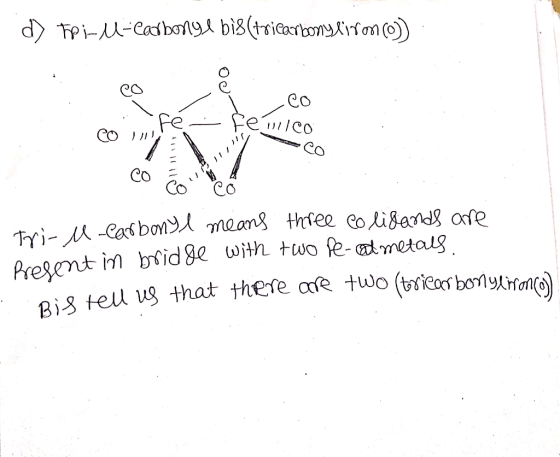 d) Tri-μ-Carbonyl bis(tricarbonyliron(0))
O
C
CO
CO
Fe — Fe
CO
CO
CO
CO
CO
CO
Tri-μ-Carbonyl means three co ligands are
Present in bridge with two Fe- metals.
Bis tell us that there are two (tricarbonyliron(0))